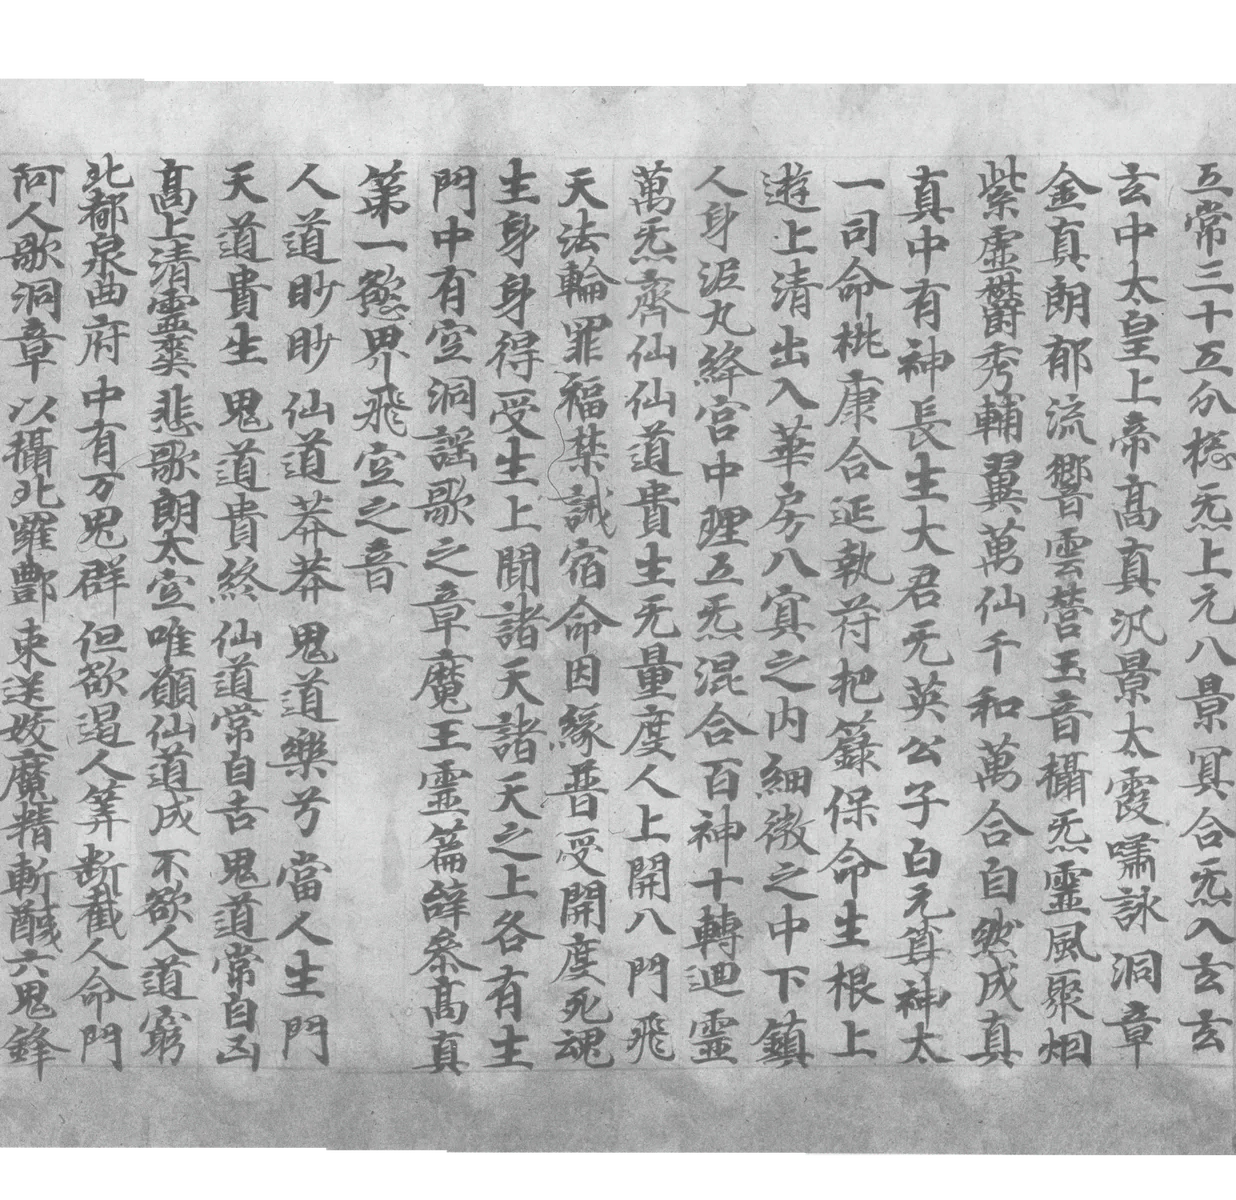 五常三十五分惣炁上元八景冥合炁入玄玄
玄中太皇上帝高真汎景太霞嘯詠洞章
金真朗郁流響雲營玉音攝炁靈風聚烟
紫虛欝秀輔翼萬仙千和萬合自然成真
真中有神長生大君无英公子白元尊神太
一司命桃康合延執符把籙保命生根上
遊上清出入華房八冥之內細微之中下鎮
人身泥丸絳宮中理五炁混合百神十轉迴靈
萬炁齊仙仙道貴生无量度人上開八門飛
天法輪罪福禁誡宿命因緣普受開度死魂
生身身得受生上聞諸天諸天之上各有生
門中有空洞謡歌之章魔王靈篇辭叅高真
第一慾界飛空之音
人道眇眇 仙道莽莽 鬼道樂兮 當人生門
天道貴生 鬼道貴終 仙道常自吉 鬼道常自凶
高上清靈爽 悲歌朗太空 唯願仙道成 不欲人道窮
北都泉曲府 中有万鬼群 但欲遏人筭 断截人命門
阿人歌洞章 以攝北羅酆 束送妖魔精 斬馘六鬼鋒